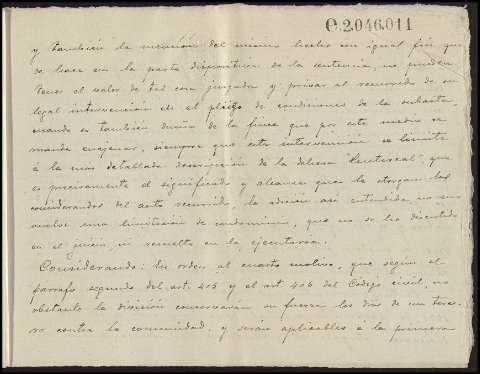 O.2.046.011
y también la mención del mismo hecho con igual fin que
se hace en la parte dispositiva de la sentencia, no pueden
tener el valor de tal cosa juzgada y privar al recurrido de su
legal intervención en el pliego de condiciones de la subasta,
cuando es también dueño de la finca que por este medio se
manda enajenar, siempre que esta intervención se limite
á la más detallada descripción de la dehesa que
es precisamente el significado y alcance que le otorgan los
considerandos del auto recurrido, la adición así entendida no en-
vuelve una limitación de condominio, que no se ha discutido
en el juicio, ni resuelto en la ejecutoria.
Considerando: En orden al cuarto motivo, que según el
párrafo segundo del art. 405 y el art 406 del Código civil, no
obstante la división conservarán su fuerza los dros de un terce-
ro contra la comunidad. y serán aplicables á la primera